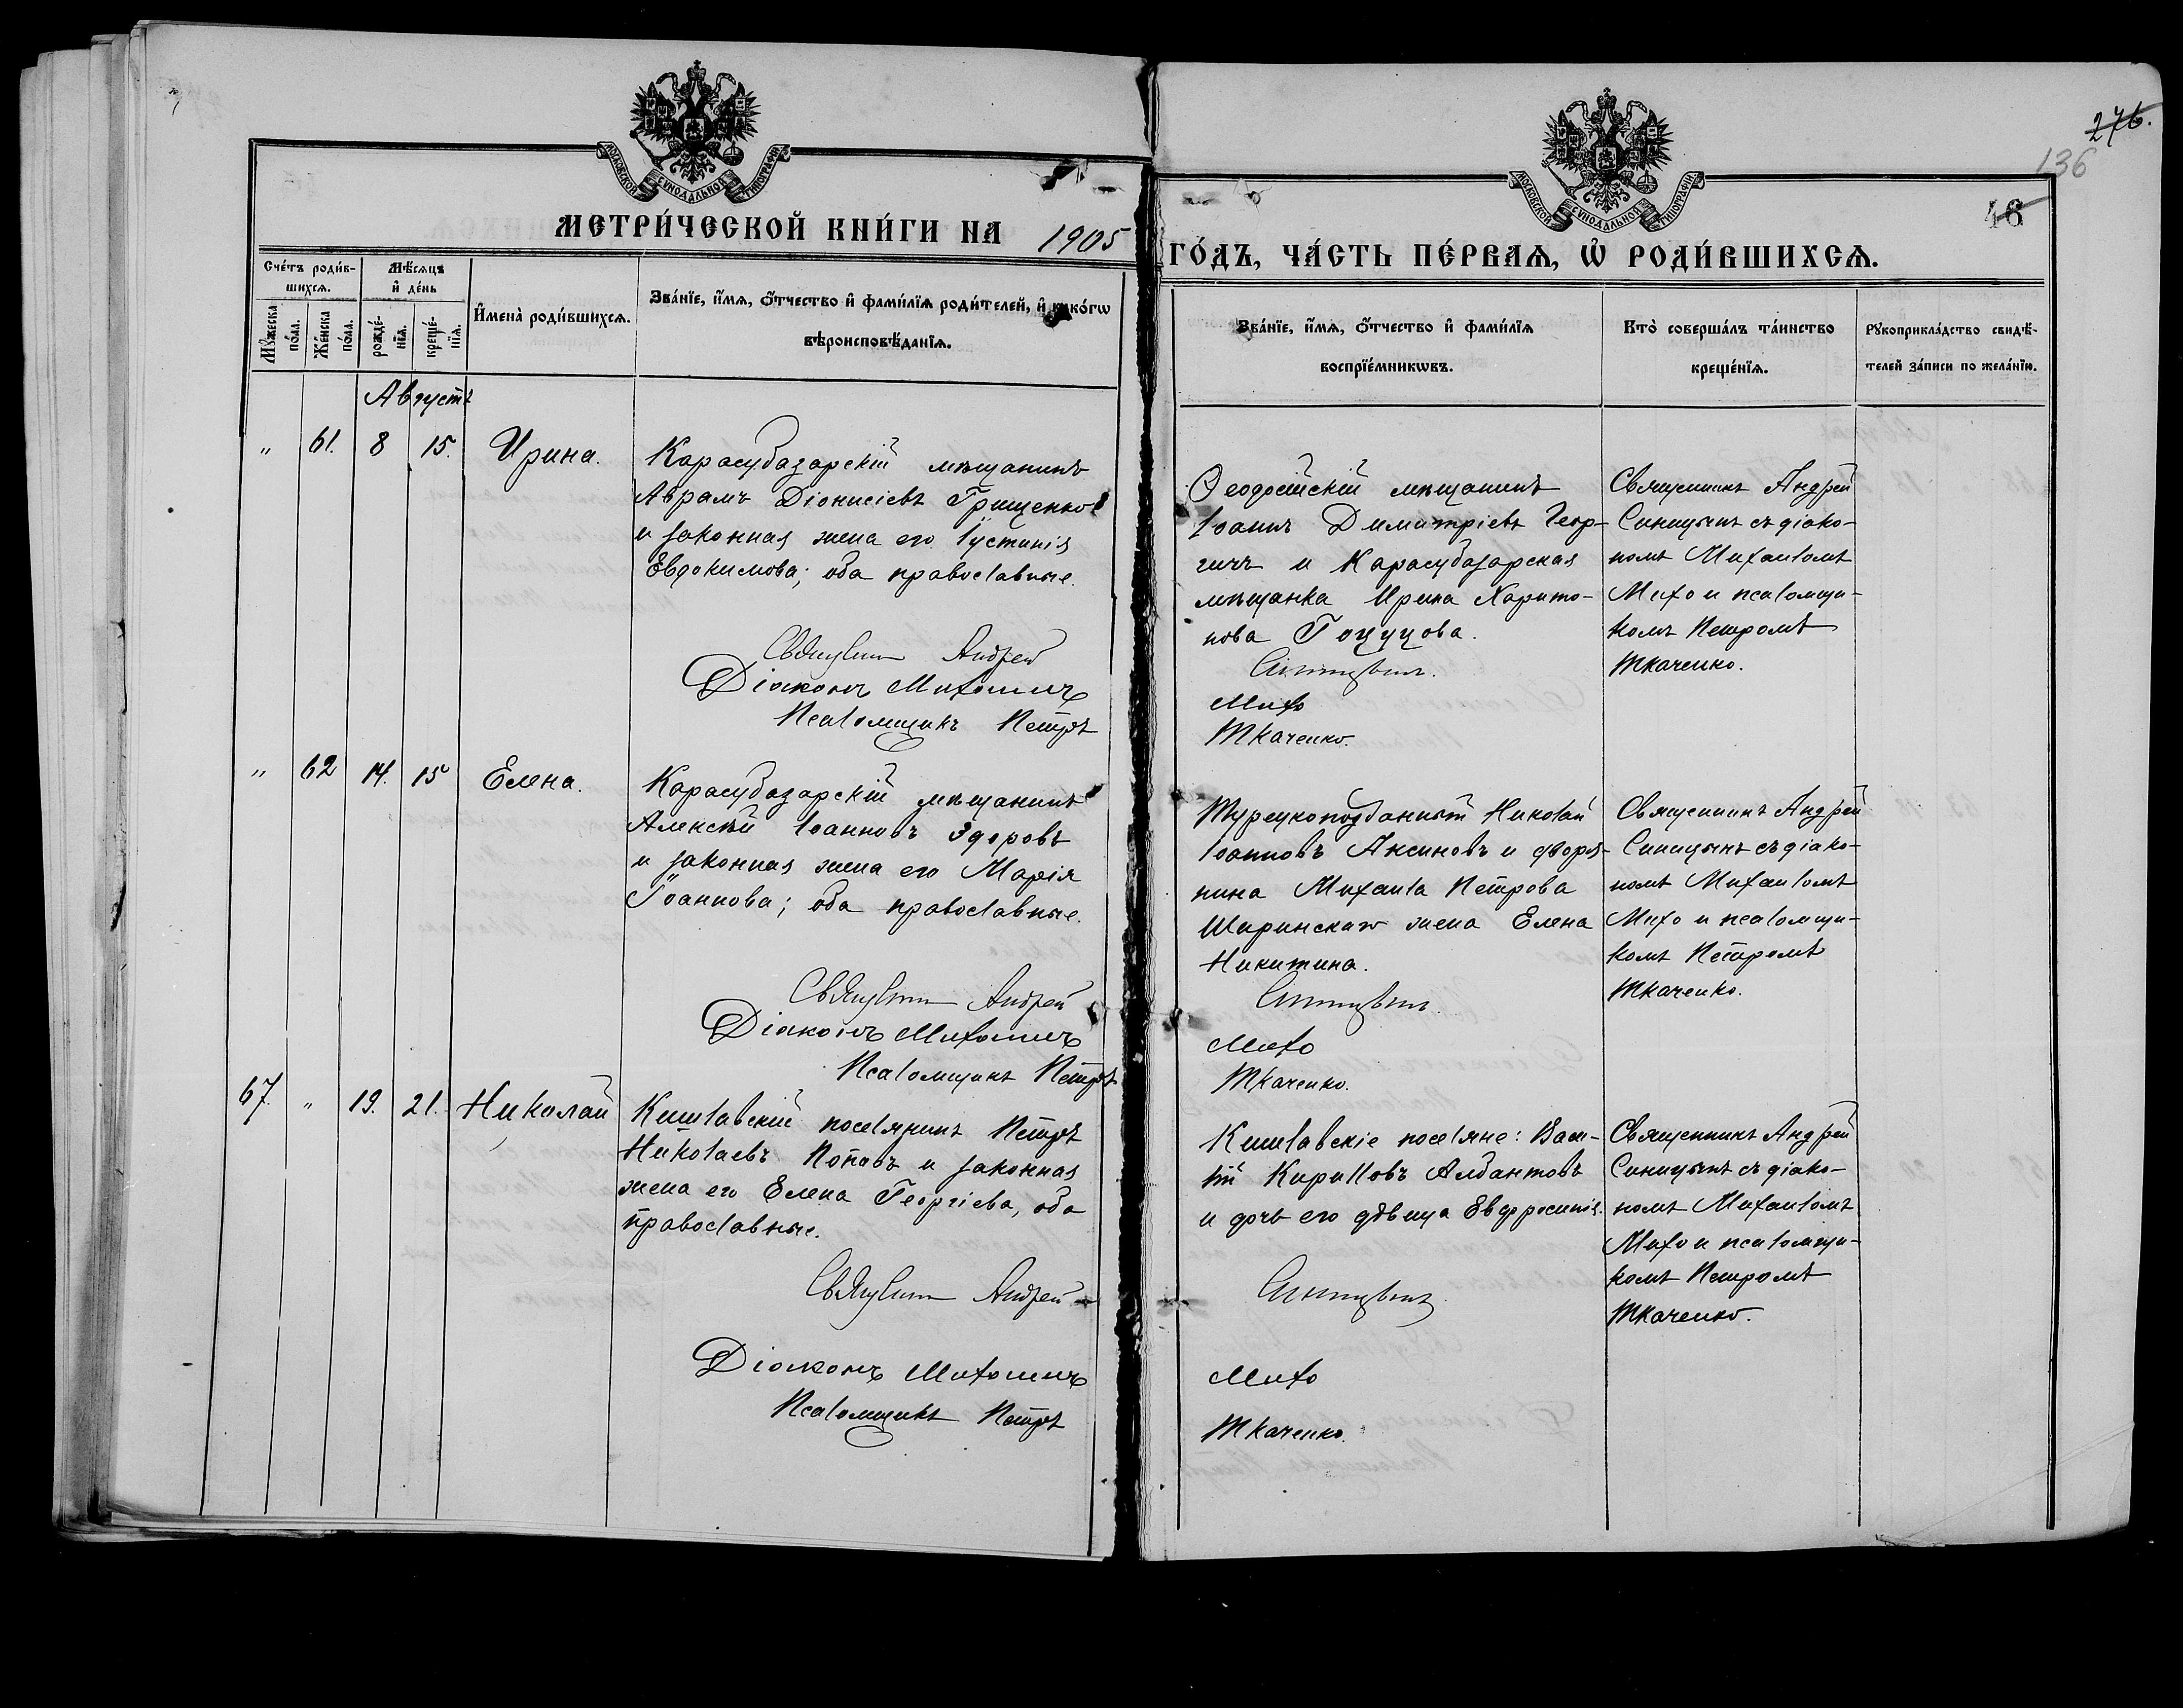 276.
136
46
МОСКОВСКОЙ СѴНОДАЛЬНОЙ ТИПОГРАФІИ
МОСКОВСКОЙ СѴНОДАЛЬНОЙ ТИПОГРАФІИ
МЕТРИ́ЧЕСКОЙ КНИ́ГИ НА 1905
ГО́ДЪ, ЧА́СТЬ ПЕ́РВАѦ, Ѡ҆ РОДИ́ВШИХСѦ.
Сче́тъ роди́в-
шихсѧ.
Мѣ́сѧцъ
и҆ де́нь
И҆мена̀ роди́вшихсѧ.
Зва́нїе, и҆́мѧ, ѻ҆́тчество и҆ фами́лїѧ роди́телей, и҆ како́гѡ
вѣроисповѣ́данїѧ.
Мꙋ́жеска
по́ла.
Же́нска
по́ла.
рожде́-
нїѧ.
креще́-
нїѧ.
Зва́нїе, и҆́мѧ, ѻ҆́тчество и҆ фами́лїѧ
воспрїе́мникѡвъ.
Кто̀ соверша́лъ та́инство
креще́нїѧ.
Рꙋкоприкла́дство свидѣ́-
телей за́писи по жела́нїю.
Августъ
" 61. 8 15. Ирина.
Карасубазарскій мѣщанинъ
Аврамъ Діонисіевъ Грищенко
и законная жена его Іустинія
Евдокимова; оба православные.
Священникъ Андрей
Діаконъ Михаилъ
Псаломщикъ Петръ
Ѳеодосійскій мѣщанинъ
Іоаннъ Димитріевъ Геор-
гичъ и Карасубазарская
мѣщанка Ирина Харито-
нова Гоцуцова.
Синицынъ.
Михо
Ткаченко.
Священникъ Андрей
Синицынъ съ діако-
номъ Михаиломъ
Михо и псаломщи-
комъ Петромъ
Ткаченко.
" 62 14. 15 Елена.
Карасубазарскій мѣщанинъ
Алексѣй Іоанновъ Здоровъ
и законная жена его Марія
Іоаннова; оба православные.
Священникъ Андрей
Діаконъ Михаилъ
Псаломщикъ Петръ
Турецкоподданный Николай
Іоанновъ Аксиновъ и дворя-
нина Михаила Петрова
Ширинскаго жена Елена
Никитина.
Синицынъ.
Михо
Ткаченко.
Священникъ Андрей
Синицынъ съ діако-
номъ Михаиломъ
Михо и псаломщи-
комъ Петромъ
Ткаченко.
67. " 19. 21. Николай
Кишлавскій поселянинъ Петръ
Николаевъ Поповъ и законная
жена его Елена Георгіева, оба
православные.
Священникъ Андрей
Діаконъ Михаилъ
Псаломщикъ Петръ
Кишлавскіе поселяне: Васи-
лій Кирилловъ Албантовъ
и дочь его дѣвица Евфросинія.
Синицынъ.
Михо
Ткаченко.
Священникъ Андрей
Синицынъ съ діако-
номъ Михаиломъ
Михо и псаломщи-
комъ Петромъ
Ткаченко.